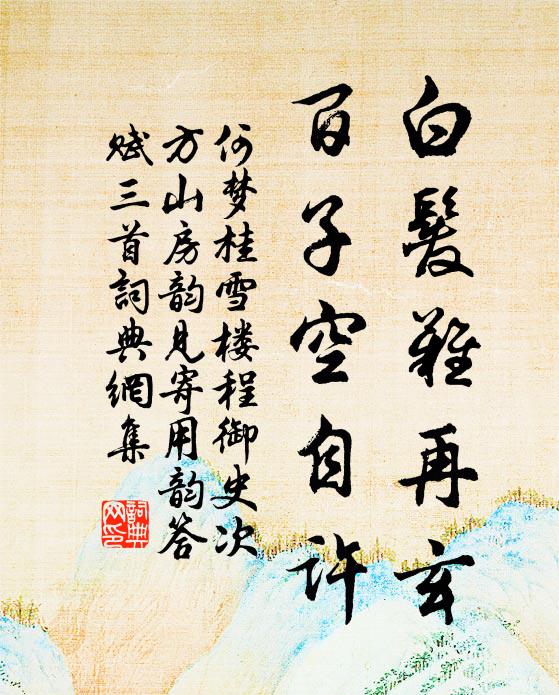 白髮難再玄
百子空自许
何梦桂雪楼程御史次
方山房韵见寄用韵答
赋三首詞典網集
詞典
网印